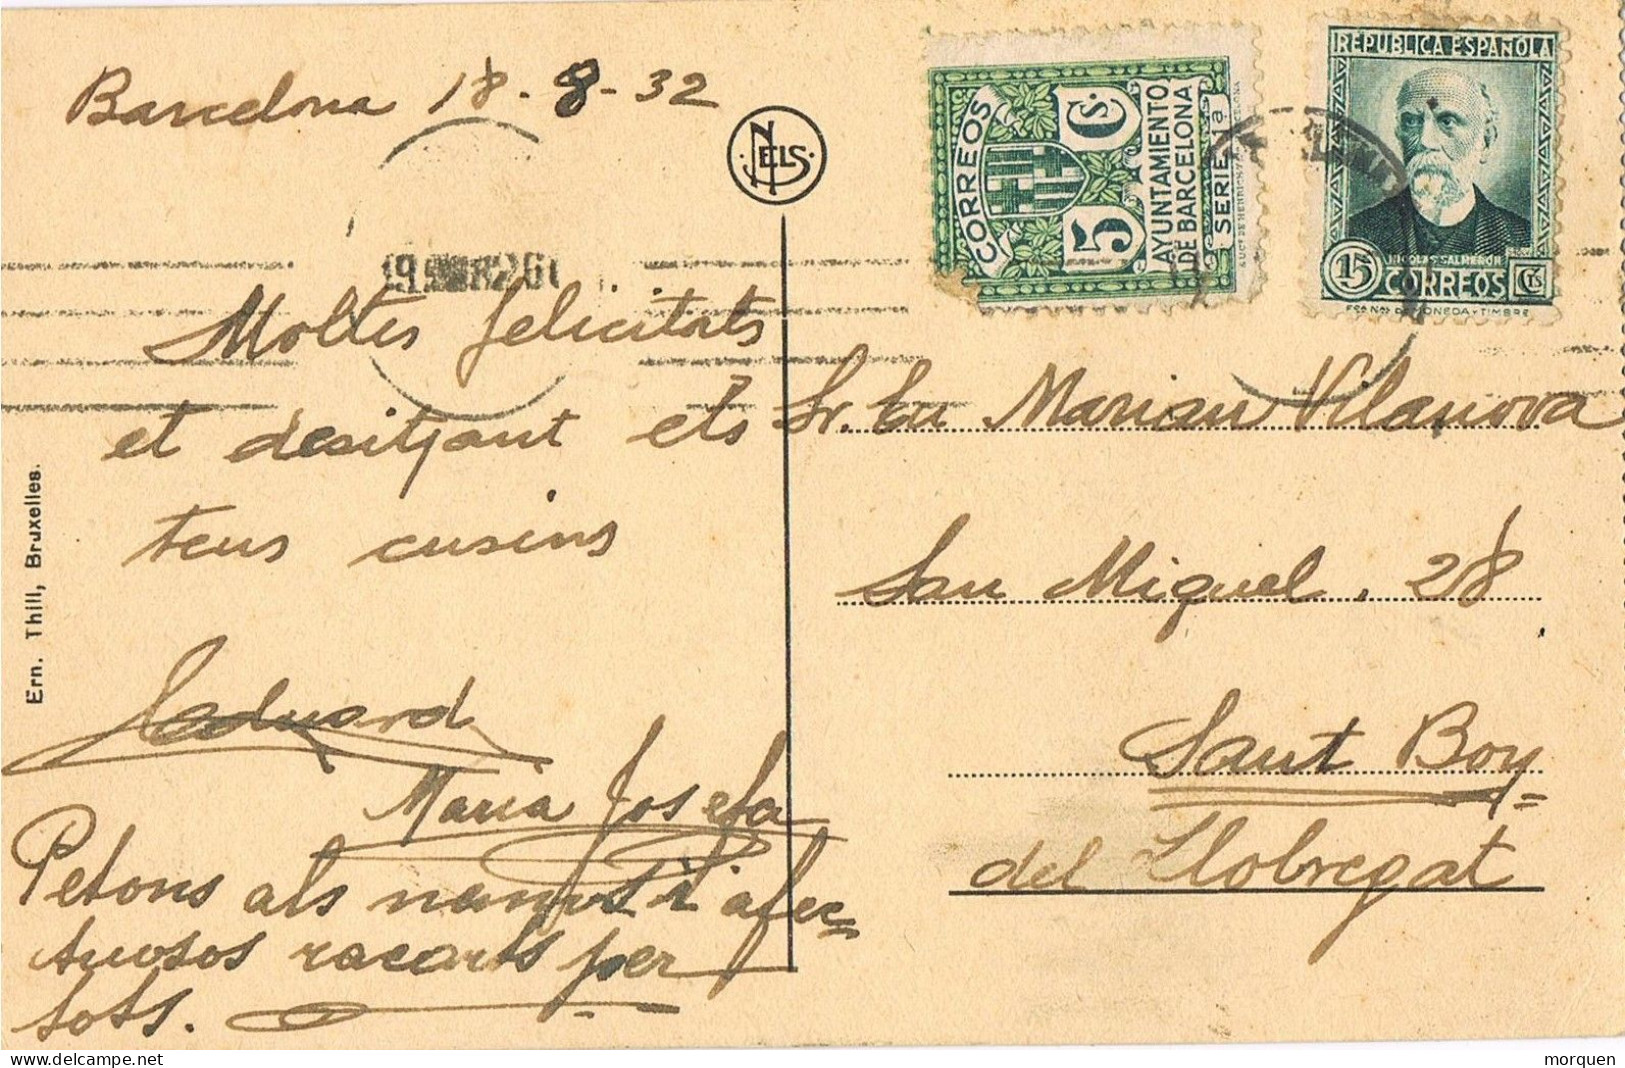 Barcelona 18-8-32
NELS
CORREOS
5 Cs.
AYUNTAMIENTO
DE BARCELONA
SERIE 1a
REPUBLICA ESPAÑOLA
NICOLAS SALMERON
15 CORREOS Cts
FCA NAL DE MONEDA Y TIMBRE
Moltes felicitats
et desitjant els
teus cusins
Eduard
Maria Josefa
Petons als nanus i afec-
tuosos racorts per
tots.
Sr. En Marian Vilanova
San Miquel. 28
Sant Boy
del Llobregat
Ern. Thill, Bruxelles.
morquen